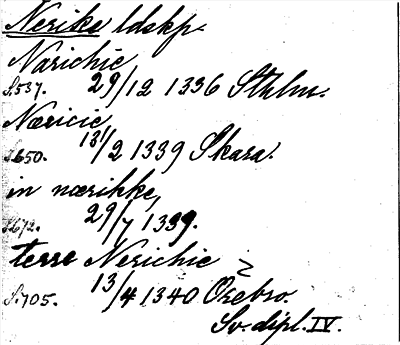 Nerike ldskp.
Narichie,
S.537. 29/12 1336 Sthlm.
Næricie,
S.650. 13/2 1339 Skara.
in nærikke,
S.672. 29/7 1339.
terre Nerichie
S.705. 13/4 1340 Örebro.
Sv. dipl. IV.